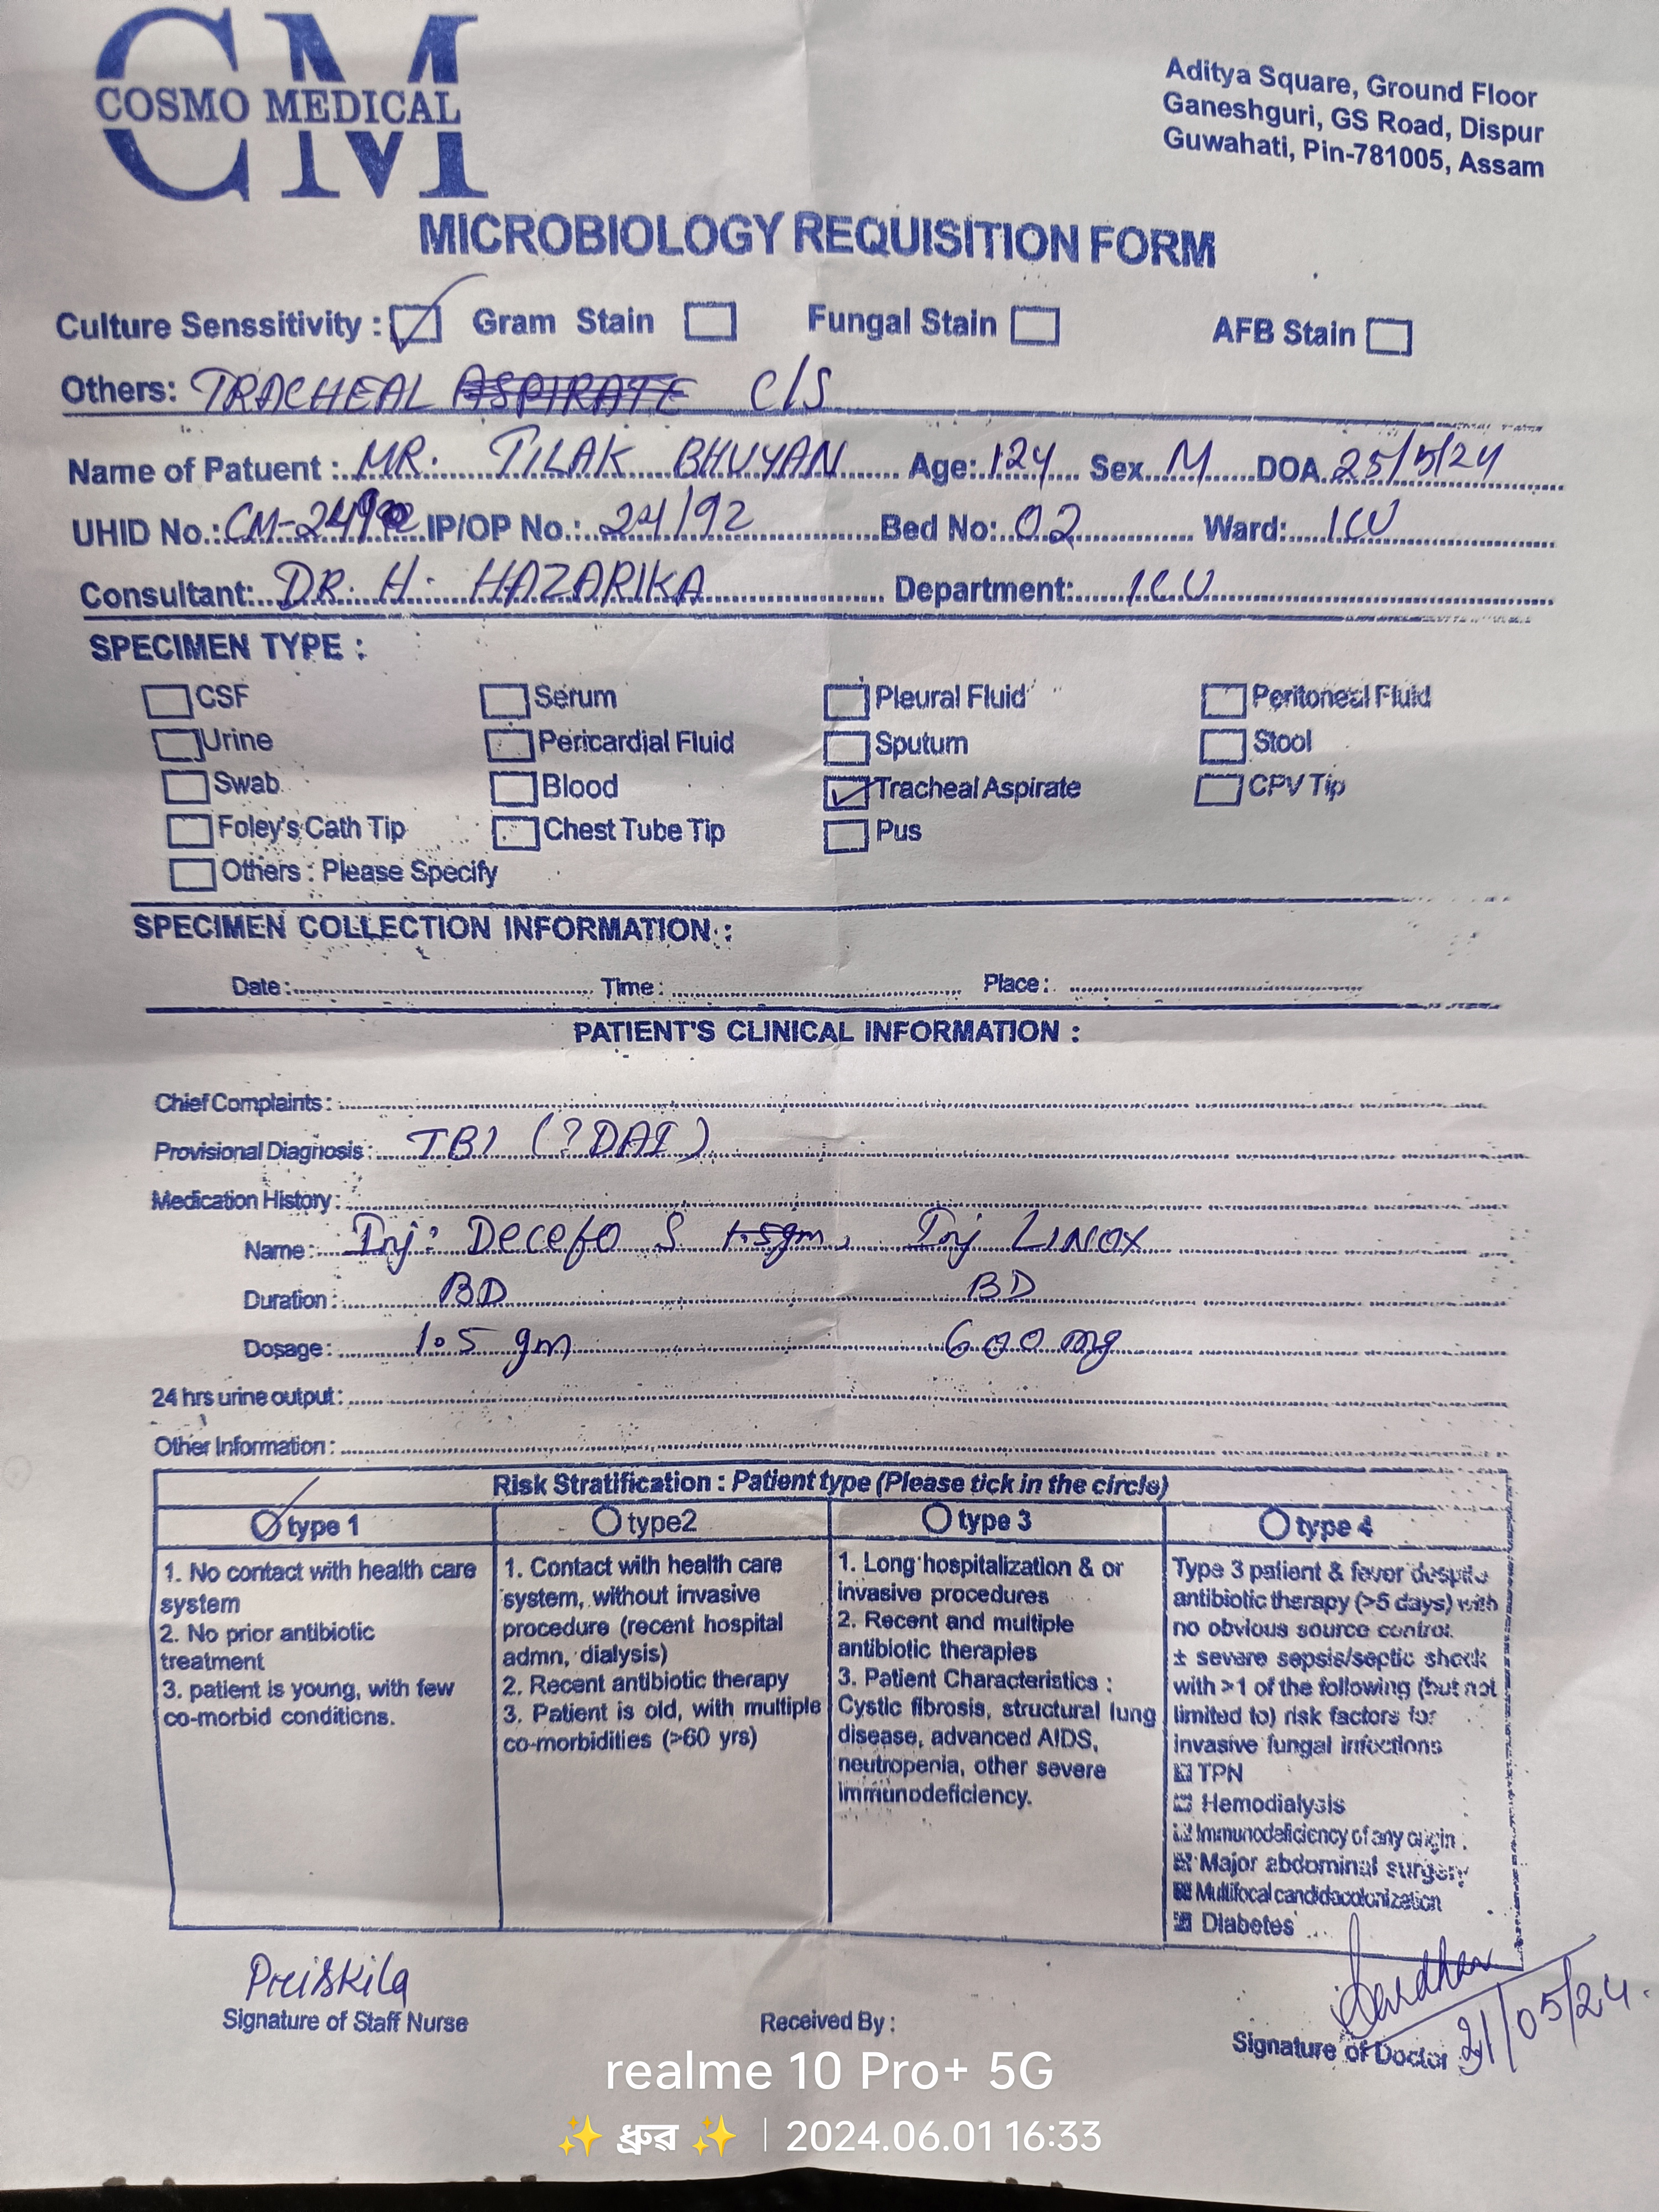 CM
COSMO MEDICAL
Aditya Square, Ground Floor
Ganeshguri, GS Road, Dispur
Guwahati, Pin-781005, Assam
MICROBIOLOGY REQUISITION FORM
Culture Senssitivity : Gram Stain Fungal Stain AFB Stain
Others: TRACHEAL ASPIRATE C/S
Name of Patuent : MR. TILAK BHUYAN Age: 124 Sex M DOA 25/5/24
UHID No.: IP/OP No.: 24/92 Bed No: 02 Ward: ICU
Consultant: DR. H. HAZARIKA Department: ICU
SPECIMEN TYPE :
CSF Serum Pleural Fluid Peritoneal Fluid
Urine Pericardial Fluid Sputum Stool
Swab Blood Tracheal Aspirate CPV Tip
Foley's Cath Tip Chest Tube Tip Pus
Others : Please Specify
SPECIMEN COLLECTION INFORMATION :
Date: Time: Place:
PATIENT'S CLINICAL INFORMATION :
Chief Complaints:
Provisional Diagnosis: TBI (? DAI)
Medication History:
Name: Inj: Decefo S 1.5gm, Inj LINOX
Duration: BD BD
Dosage: 1.5 gm 600 mg
24 hrs urine output:
Other Information:
Risk Stratification : Patient type (Please tick in the circle)
type 1 type2 type 3 type 4
1. No contact with health care
system
2. No prior antibiotic
treatment
3. patient is young, with few
co-morbid conditions.
1. Contact with health care
system, without invasive
procedure (recent hospital
admn, dialysis)
2. Recent antibiotic therapy
3. Patient is old, with multiple
co-morbidities (>60 yrs)
1. Long hospitalization & or
invasive procedures
2. Recent and multiple
antibiotic therapies
3. Patient Characteristics :
Cystic fibrosis, structural lung
disease, advanced AIDS,
neutropenia, other severe
immunodeficiency.
Type 3 patient & fever despite
antibiotic therapy (>5 days) with
no obvious source control.
± severe sepsis/septic shock
with >1 of the following (but not
limited to) risk factors for
invasive fungal infections
TPN
Hemodialysis
Immunodeficiency of any origin.
Major abdominal surgery
Multifocal candidacolonization
Diabetes
Preiskila
Signature of Staff Nurse
Received By :
Signature of Doctor 31/05/24.
realme 10 Pro+ 5G
✨ ধ্ৰুৱ ✨ | 2024.06.01 16:33